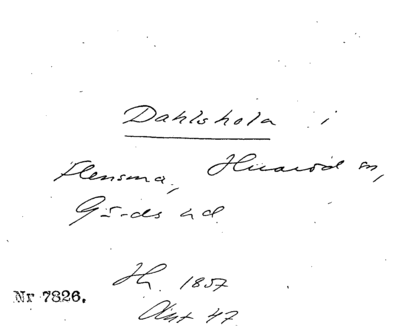 Dahlshola i
Flensma, Huaröd sn,
Gärds hd
Hl. 1857
Akt 47
Nr 7826.